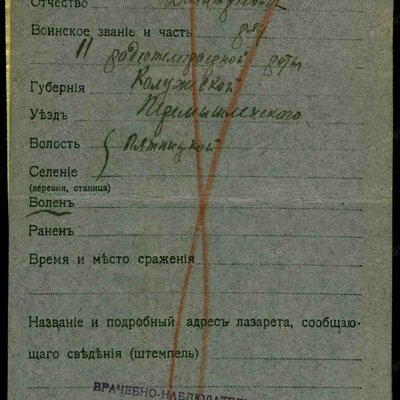 Отчество
Воинское званіе и часть ряд
11 радиотелеграфной роты
Губернія Калужской
Уѣздъ Перемышленского
Волость Пятницкой
Селеніе
(деревня, станица)
Боленъ
Раненъ
Время и мѣсто сраженія
Названіе и подробный адресъ лазарета, сообщаю-
щаго свѣдѣнія (штемпель)
ВРАЧЕБНО-НАБЛЮДАТЕЛ